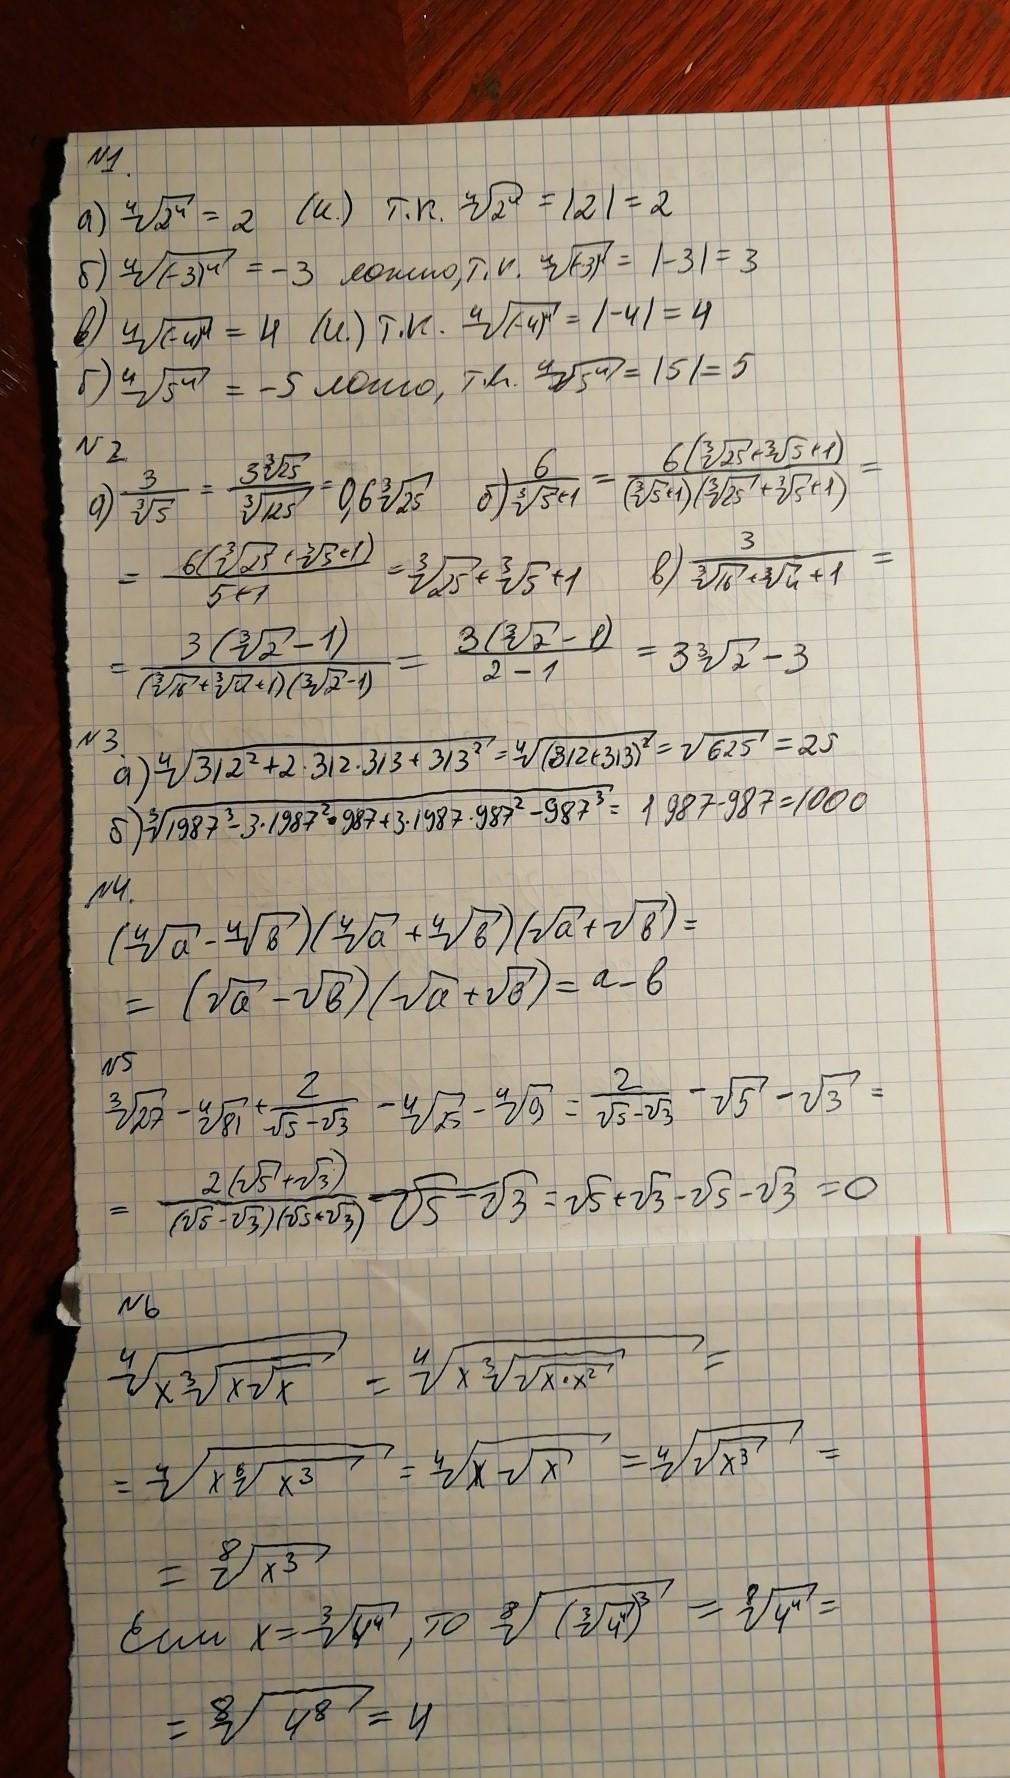 №1.
а) ⁴√2⁴ = 2 (и.) т.к. ⁴√2⁴ = |2| = 2
б) ⁴√(-3)⁴ = -3 ложно, т.к. ⁴√(-3)⁴ = |-3| = 3
в) ⁴√(-4)⁴ = 4 (и.) т.к. ⁴√(-4)⁴ = |-4| = 4
б) ⁴√5⁴ = -5 ложно, т.к. ⁴√5⁴ = |5| = 5
№2
а) 3/∛5 = 3∛25/∛125 = 0,6∛25 б) 6/(∛5+1) = 6(∛25+∛5+1)/((∛5+1)(∛25+∛5+1)) =
= 6(∛25+∛5+1)/(5+1) = ∛25+∛5+1 в) 3/(∛16+∛4+1) =
= 3(∛2-1)/((∛16+∛4+1)(∛2-1)) = 3(∛2-1)/(2-1) = 3∛2-3
№3
а) ⁴√(312²+2·312·313+313²) = ⁴√(312+313)² = √625 = 25
б) ∛(1987³-3·1987²·987+3·1987·987²-987³) = 1987-987=1000
№4.
(⁴√a-⁴√в)(⁴√a+⁴√в)(√a+√в)=
= (√a-√в)(√a+√в)=a-в
№5
∛27-⁴√81+2/(√5-√3)-⁴√25-⁴√9 = 2/(√5-√3)-√5-√3 =
= 2(√5+√3)/((√5-√3)(√5+√3))-√5-√3 = √5+√3-√5-√3 = 0
№6
⁴√(x∛(x√x)) = ⁴√(x∛(√(x·x²))) =
= ⁴√(x⁶√x³) = ⁴√(x√x) = ⁴√(√x³) =
= ⁸√x³
Если x=∛4⁴, то ⁸√(∛4⁴)³ = ⁸√4⁴ =
= ⁸√4⁸ = 4